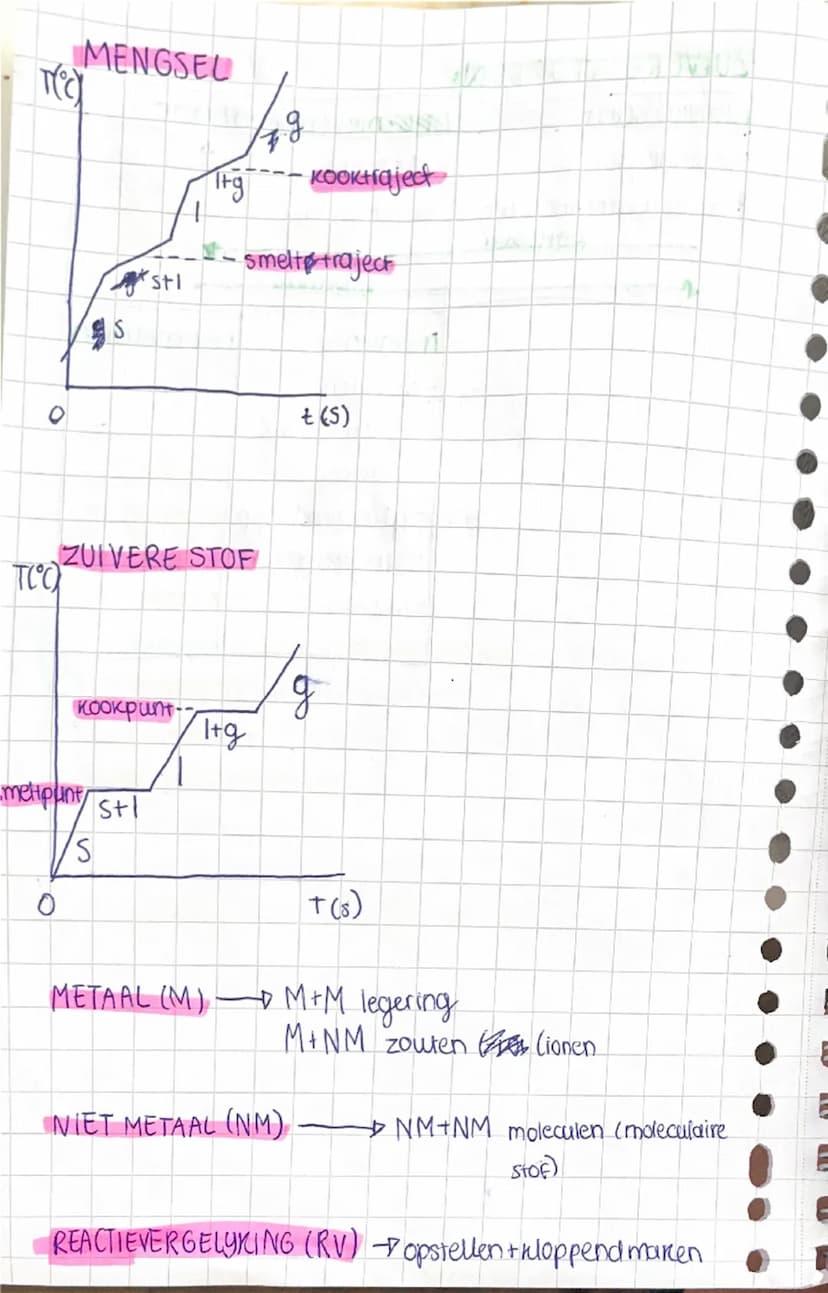 MENGSEL
T(°C)
g
l+g
kooktraject
l
smelttraject
s+l
s
0
t(s)
ZUIVERE STOF
T(°C)
g
kookpunt
l+g
l
smeltpunt
s+l
s
0
T(s)
METAAL (M) → M+M legering
M+NM zouten (ionen
NIET METAAL (NM) → NM+NM moleculen (moleculaire
stof)
REACTIEVERGELYKING (RV) → opstellen + kloppend maken